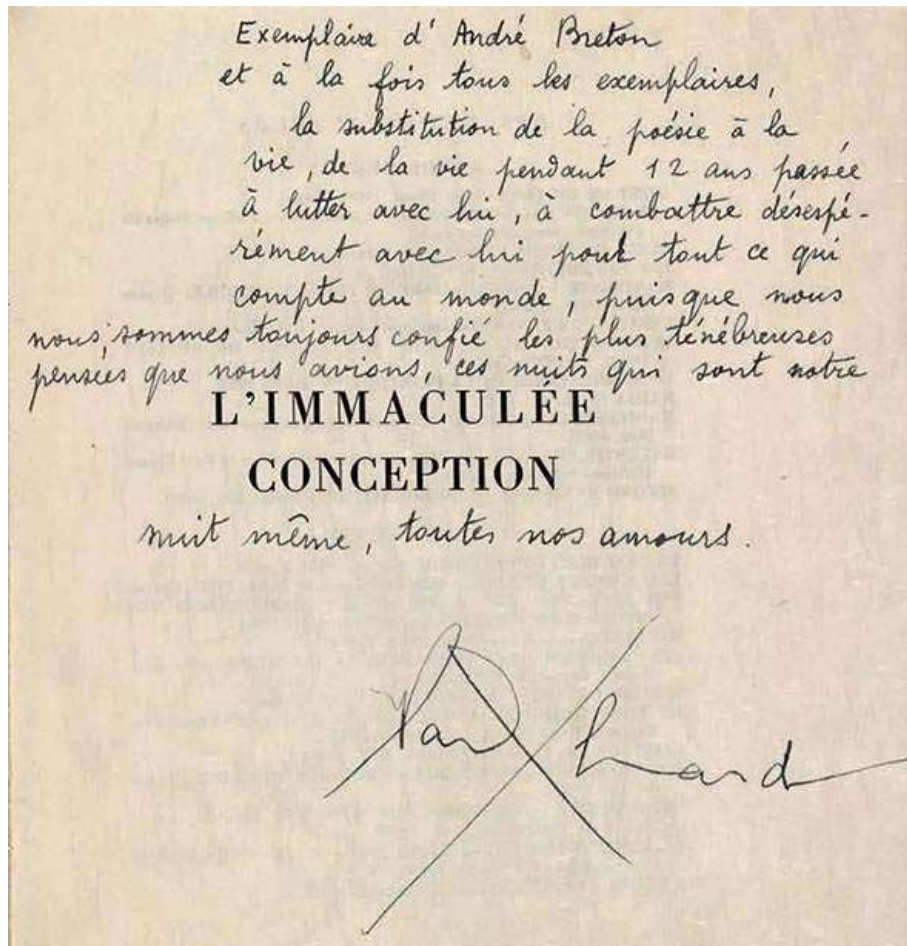 Exemplaire d'André Breton
et à la fois tous les exemplaires,
la substitution de la poésie à la
vie, de la vie pendant 12 ans passée
à lutter avec lui, à combattre désespé-
rément avec lui pour tout ce qui
compte au monde, puisque nous
nous sommes toujours confié les plus ténébreuses
pensées que nous avions, ces nuits qui sont notre
L'IMMACULÉE
CONCEPTION
nuit même, toutes nos amours.
Paul Eluard